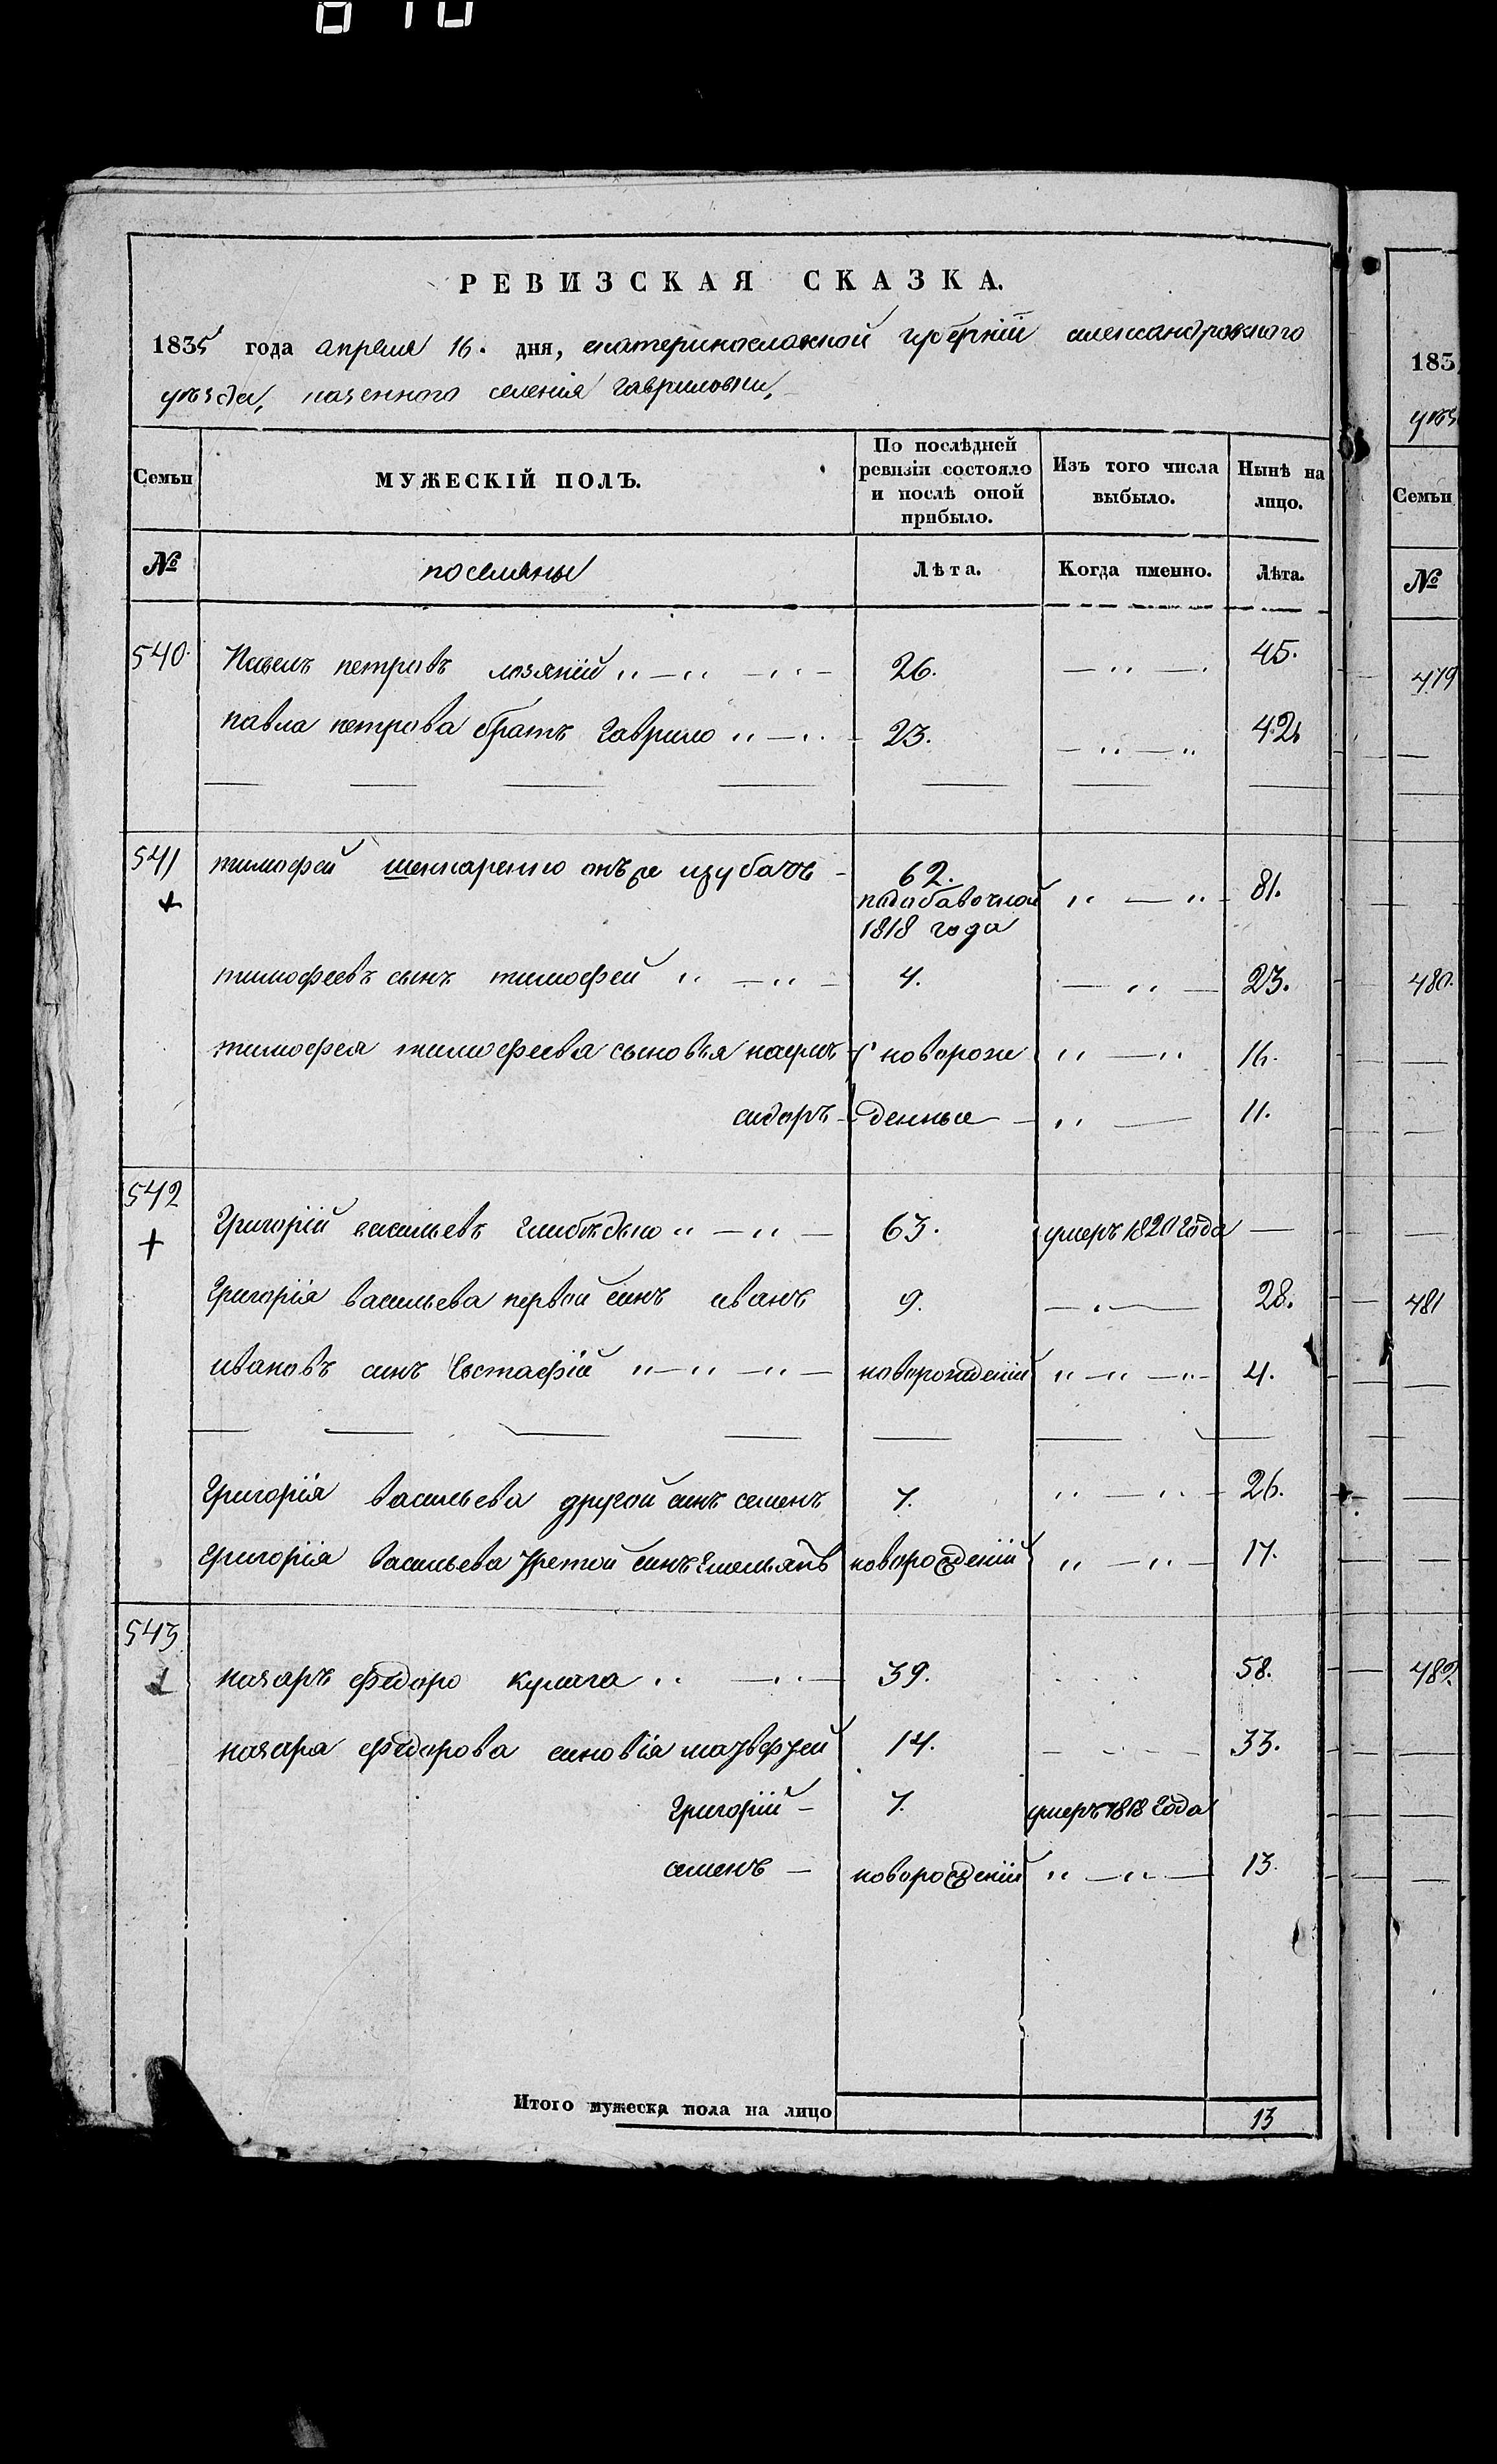 РЕВИЗСКАЯ СКАЗКА.
1835 года апреля 16. дня, екатеринославской губерніи александровского
уѣзда, казенного селенія гавриловки,
Семьи МУЖЕСКІЙ ПОЛЪ. По послѣдней ревизіи состояло и послѣ оной прибыло. Изъ того числа выбыло. Нынѣ на лицо.
№ поселяны Лѣта. Когда именно. Лѣта.
540. Павелъ петровъ лозяній „ — „ — „ — 26. — „ — 45.
павла петрова братъ гаврило „ — „ 23. — „ — „ 42.
541 тимофей онъ же 62. „ — „ 81.
подобавочной
1818 года
тимофеевъ сынъ тимофей „ — „ — 4. — „ — 23.
тимофея тимофеева сыновья наумъ новорож „ — „ 16.
сидоръ денные — „ — 11.
542 Григорій васильевъ „ — „ — 63. умеръ 1820 года —
Григорія васильева первой синъ иванъ 9. — „ — 28.
ивановъ синъ Евстафій „ — „ — „ — новорожденій „ — „ — „ — 4.
Григорія васильева другой синъ семенъ 7. „ — „ — 26.
григорія васильева третой синъ Емельянъ новорожденій „ — „ — 17.
543 назаръ федоро кулага „ — „ — 39. 58.
назара федорова синовія 14. 33.
Григорій — 7. умеръ 1818 года
семенъ — новорожденій „ — „ — 13.
Итого мужеска пола на лицо 13
183
уѣз
Семьи
№
479
480.
481
482